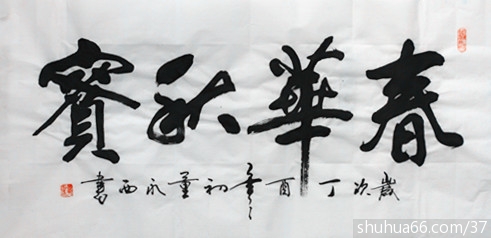 春華秋實
歲次丁酉年初董永西書
shuhua66.com/37